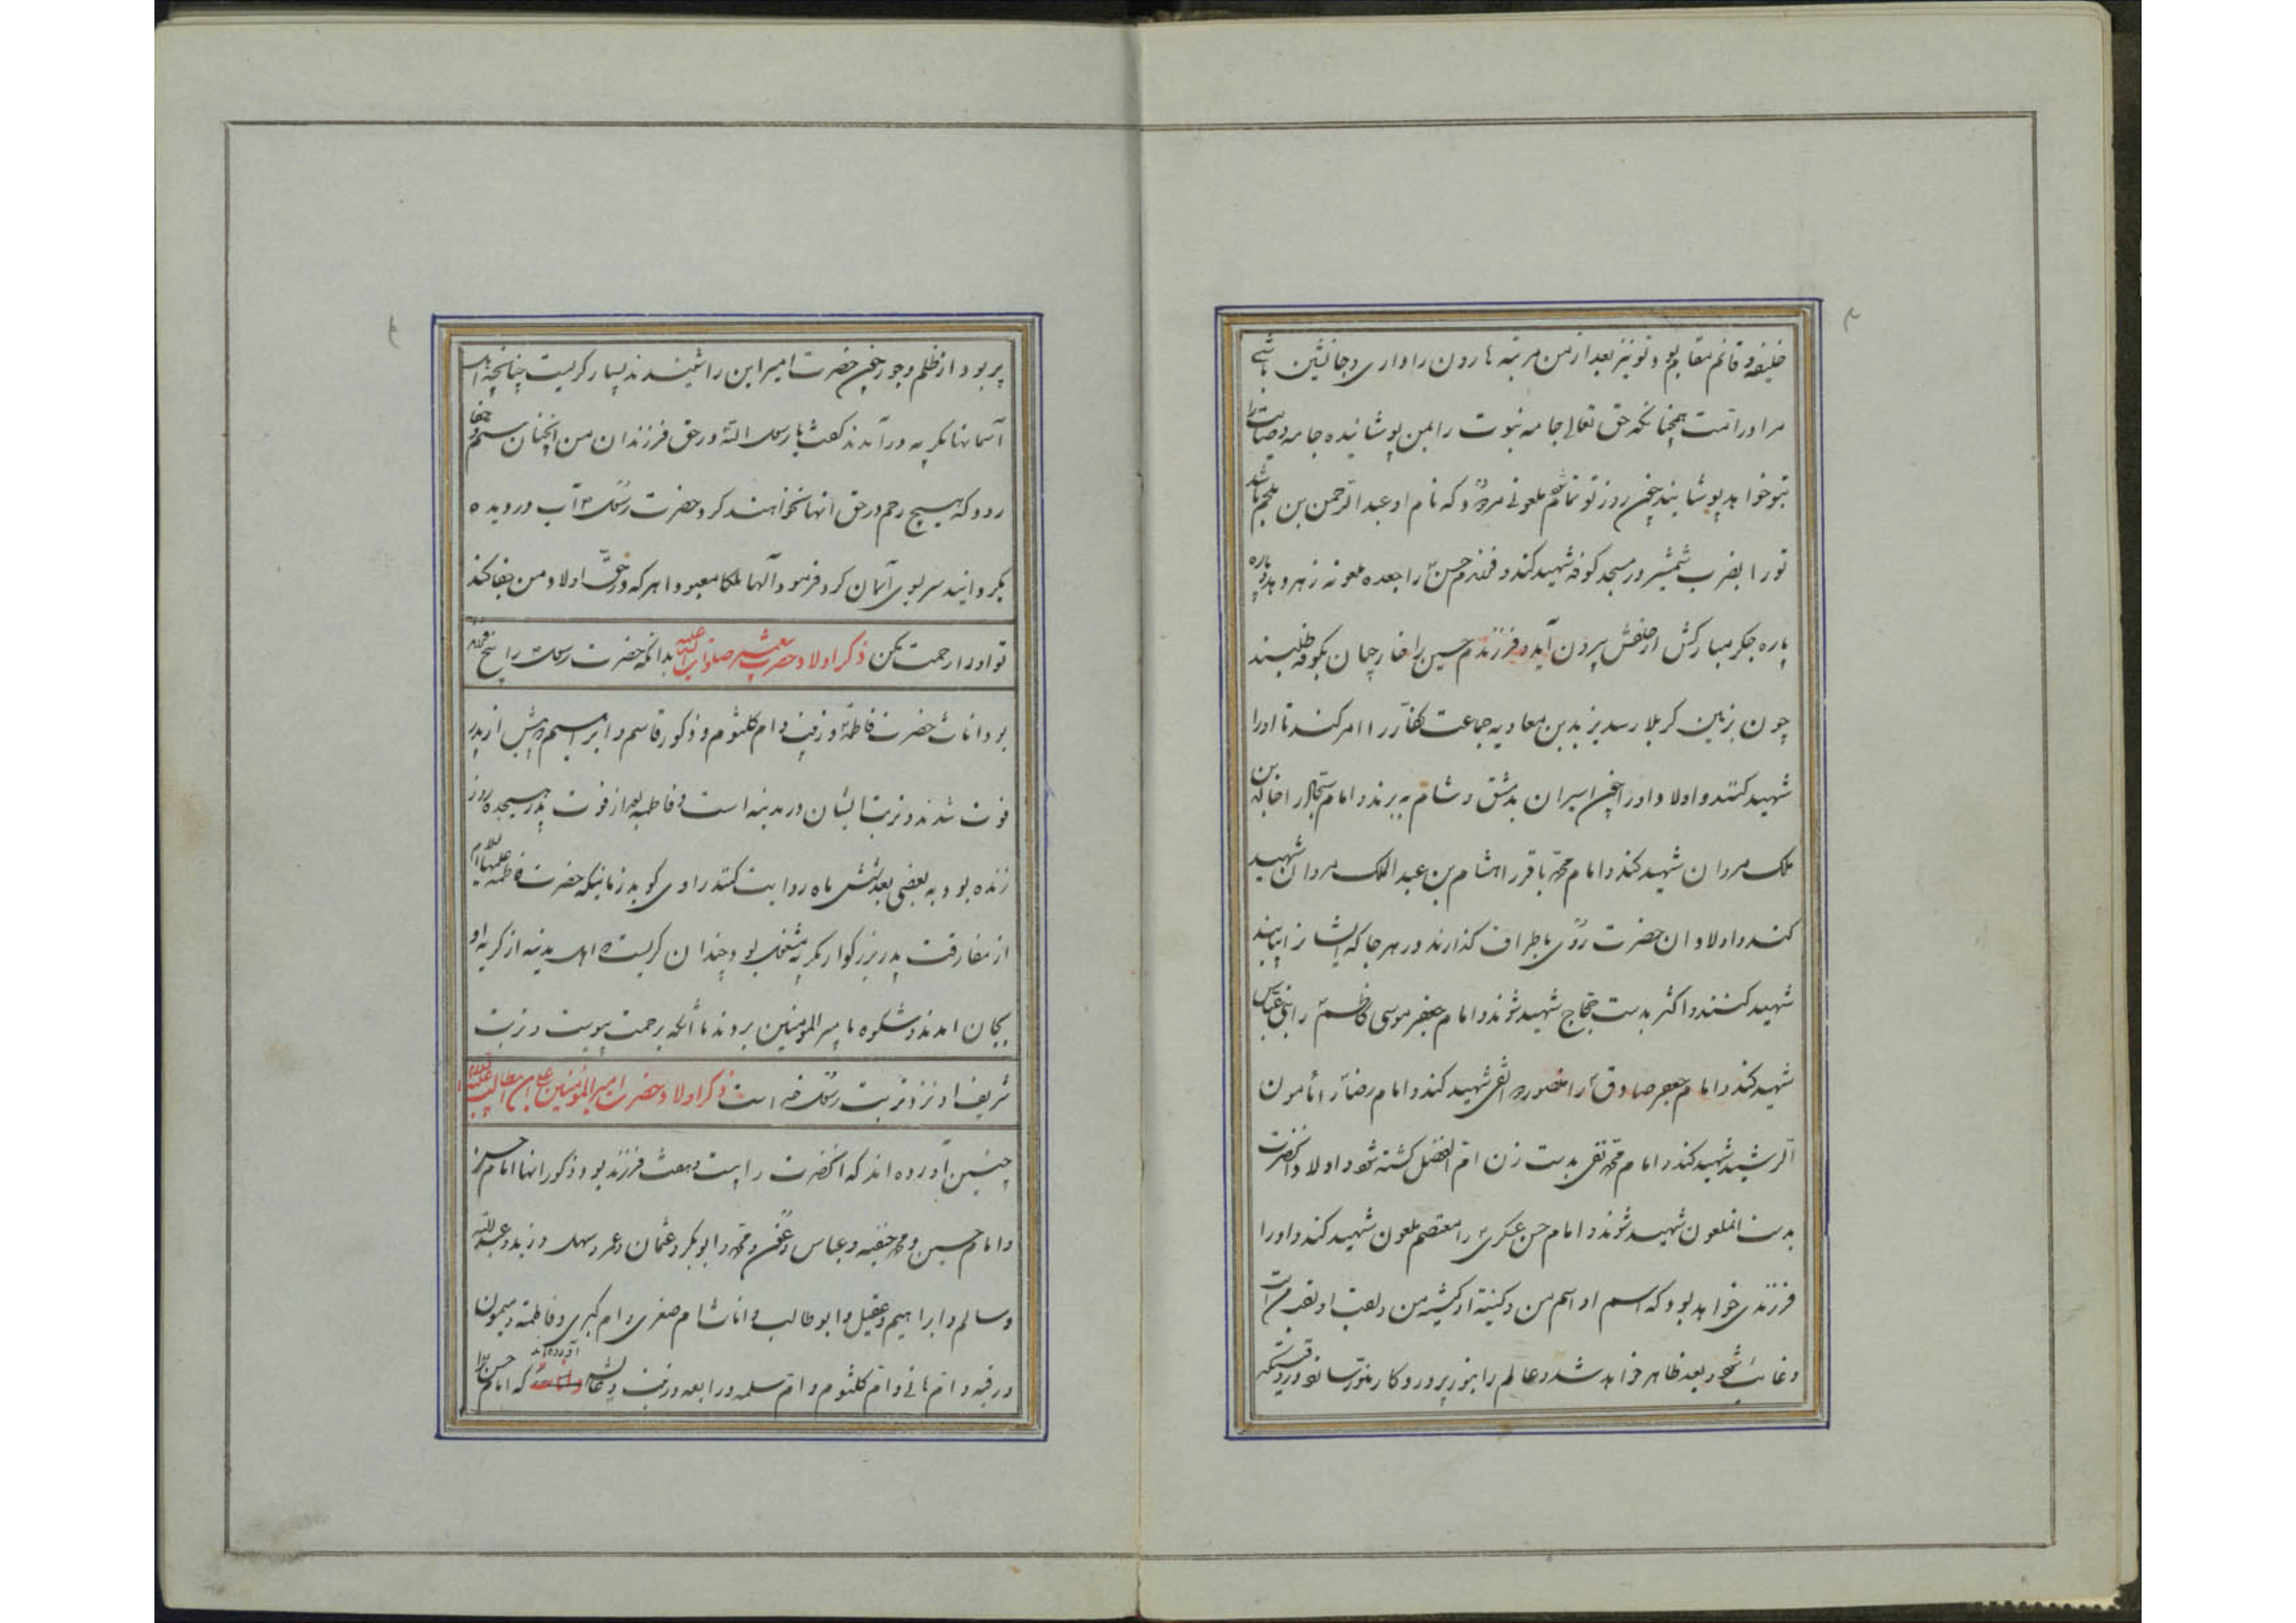 خلیفه و قائم مقام بود و تو نیز بعد از من مرتبه هارون را داری و جانشین باشی
مرا در امت همچنانکه حق تعالی جامه نبوت را بمن پوشانیده جامه وصایت را
بتو خواهد پوشانید چون روز تو تمام ملعونی که نام او عبدالرحمن بن ملجم باشد
تو را بضرب شمشیر در مسجد کوفه شهید کند و فرزندم حسن را جعده ملعونه زهر دهد و پاره
پاره جگر مبارکش از حلقش بیرون آید و فرزندم حسین را خارجیان بکوفه طلبند
چون بزمین کربلا رسد یزید بن معاویه جماعت کفار را امر کند تا او را
شهید کنند و اولاد او را چون اسیران بدمشق و شام برند و امام سجاد را
ملک مروان شهید کند و امام محمد باقر را هشام بن عبد الملک مروان شهید
کند و اولاد ان حضرت روی باطراف گذارند در هر جا که ایشانرا بیابند
شهید کنند و اکثر بدست حجاج شهید شوند و امام جعفر موسی کاظم را بنی عباس
شهید کند و امام جعفر صادق را منصور شهید کند و امام رضا را مأمون
الرشید شهید کند و امام محمد تقی بدست زن ام الفضل کشته شود و اولاد انحضرت
بدست انملعون شهید شوند و امام حسن عسکری را معتصم ملعون شهید کند و او را
فرزندی خواهد بود که اسم او اسم من و کنیة او کنیة من و لقب او لقب من است
و غائب شود بعد ظاهر خواهد شد و عالم را بنور پروردگار منور سازد
پر بود از ظلم و جور چون حضرت امیر این را شنیدند بسیار گریست چنانچه اهل
آسمانها بگریه در آمدند گفت یا رسول الله در حق فرزندان من اینچنان ستم و جفا
رود که هیچ رحم در حق انها نخواهند کرد حضرت رسول آب در دیده
بگردانید سر بسوی آسمان کرد فرمود آلها ملکا معبودا هر که در حق اولاد من جفا کند
تو او را رحمت مکن ذکر اولاد حضرت پیغمبر صلوات الله علیه بدانکه حضرت رسول را پنج فرزند
بود اناث حضرت فاطمه و زینب و ام کلثوم و ذکور قاسم و ابراهیم پیش از پدر
فوت شدند و تربت ایشان در مدینه است و فاطمه بعد از فوت پدر هیجده روز
زنده بود و به بعضی بعد شش ماه روایت کنند راوی گوید زمانیکه حضرت فاطمه علیها السلام
از مفارقت پدر بزرگوار بگریه مشغول بود چندان گریست اهل مدینه از گریه او
بجان امدند و شکوه با میر المومنین بردند تا آنکه برحمت پیوست و تربت
شریف او نزد تربت رسول خدا است ذکر اولاد حضرت امیر المومنین علی بن ابیطالب علیه السلام
چنین آورده اند که انحضرت را بیست و هفت فرزند بود ذکور انها امام حسن
و امام حسین و محمد حنفیه و عباس و عون و محمد و ابوبکر و عثمان و عمر و سهل و زید و عبدالله
و سالم و ابراهیم و عقیل و ابوطالب و اناث ام صغری و ام کبری و فاطمه و میمون
و رقیه و ام هانی و ام کلثوم و ام سلمه و رابعه و زینب و عایشه آورده اند که امام حسن را